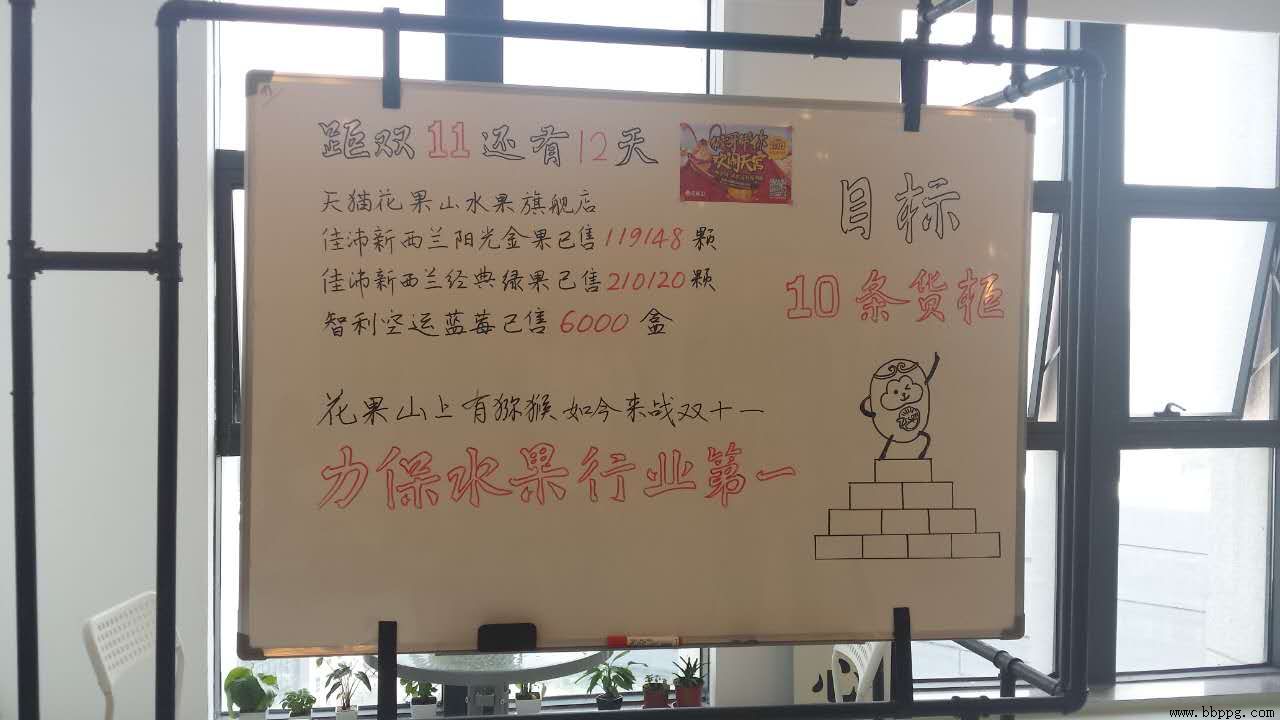 距双11还有12天
天猫花果山水果旗舰店
佳沛新西兰阳光金果已售119148颗
佳沛新西兰经典绿果已售210120颗
智利空运蓝莓已售6000盒
花果山上有猕猴如今来战双十一
力保水果行业第一
目标
10条货柜
www.bbppg.com